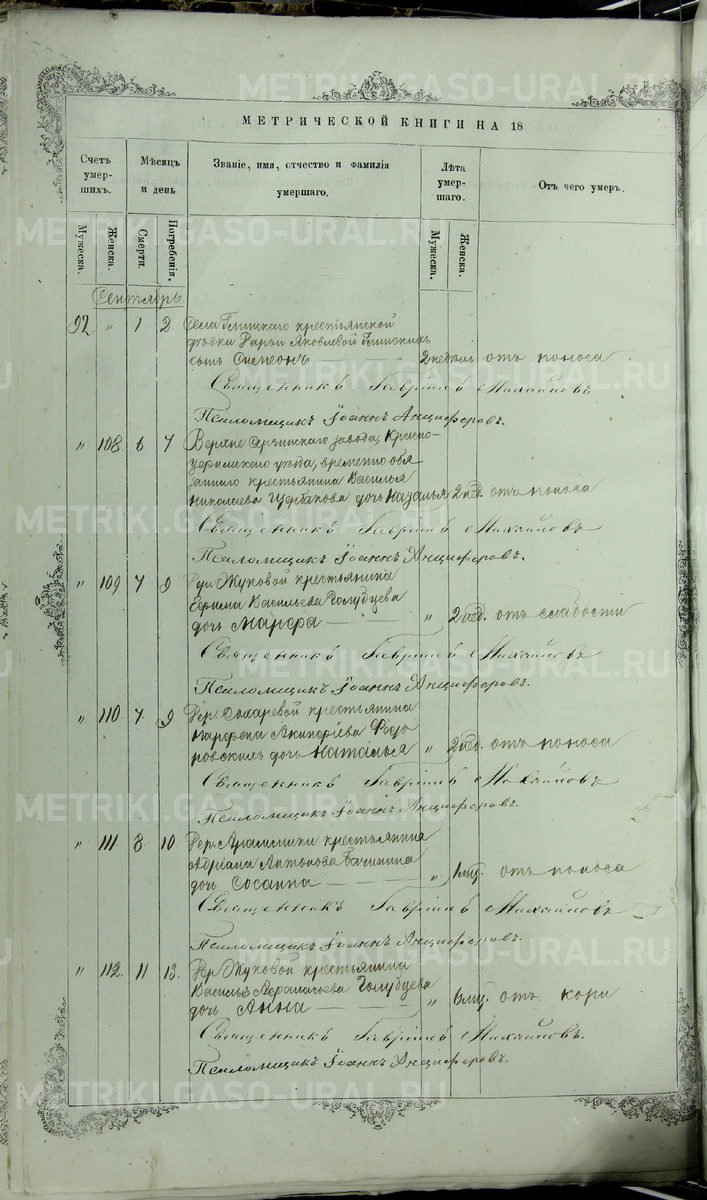 МЕТРИЧЕСКОЙ КНИГИ НА 18
Счетъ умер-шихъ.
Мѣсяцъ и день
Званіе, имя, отчество и фамилія умершаго.
Лѣта умер-шаго.
Отъ чего умеръ.
Мужеска.
Женска.
Смерти.
Погребенія.
Мужеска.
Женска.
Сентябрь
92 " 1 2 Села крестьянской
дѣвки Дарьи Яковлевой
сынъ Симеонъ 2 недѣль отъ поноса
Священникъ Гавріилъ Михайловъ
Псаломщикъ Іоаннъ Анциферовъ.
" 108 6 7 Верхне Серчинскаго завода, Красно-
уфимскаго уѣзда, временно обя
заннаго крестьянина Василья
Николаева Щербакова дочь 2 нед. отъ поноса
Священникъ Гавріилъ Михайловъ
Псаломщикъ Іоаннъ Анциферовъ.
" 109 7 9 Дер. Жуковой крестьянина
Ефима Васильева Голубцева
дочь Марфа " 2 нед. отъ слабости
Священникъ Гавріилъ Михайловъ
Псаломщикъ Іоаннъ Анциферовъ.
" 110 7 9 Дер. Токаревой крестьянина
Парфена Федо
ровскихъ дочь Наталья " 2 нед. отъ поноса
Священникъ Гавріилъ Михайловъ
Псаломщикъ Іоаннъ Анциферовъ.
" 111 8 10 Дер. крестьянина
Адріана Антонова
дочь Сосанна " 1 мѣс. отъ поноса
Священникъ Гавріилъ Михайловъ
Псаломщикъ Іоаннъ Анциферовъ.
" 112 11 13 Дер. Жуковой крестьянина
Василья Аѳанасьева Голубцева
дочь Анна " 6 мѣс. отъ кори
Священникъ Гавріилъ Михайловъ.
Псаломщикъ Іоаннъ Анциферовъ.
METRIKI.GASO-URAL.RU